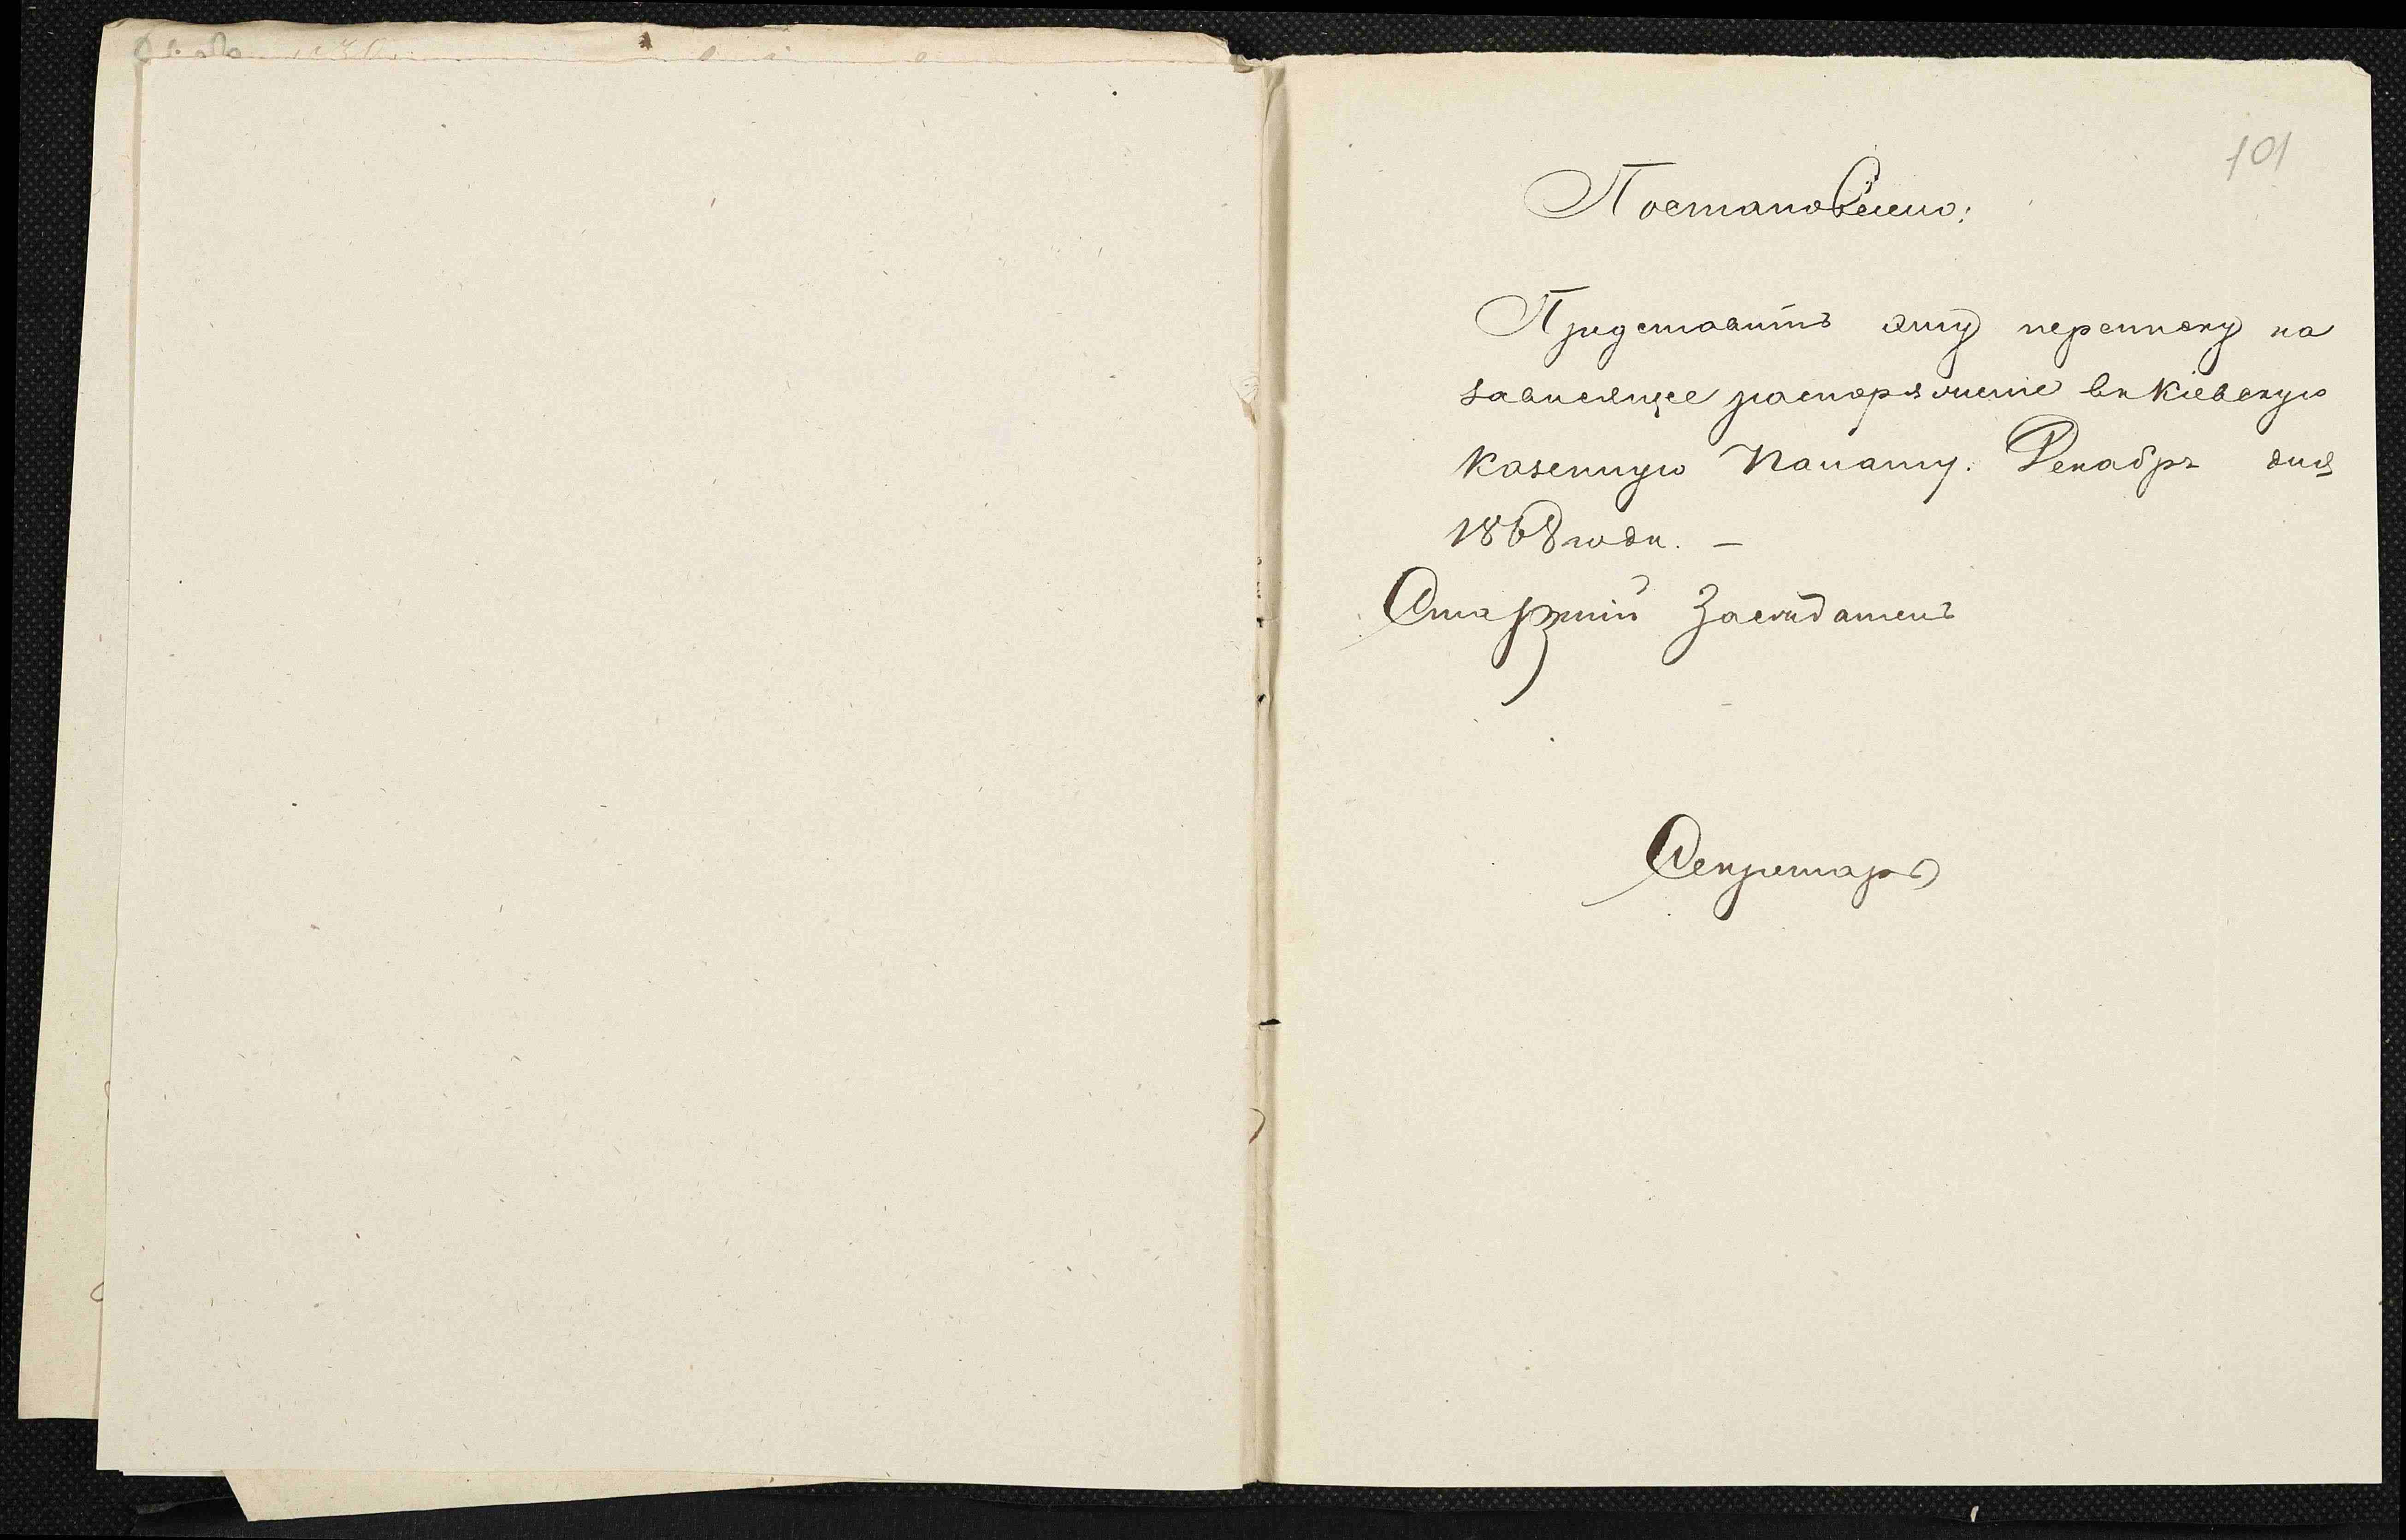 101
Постановлено:
Представить эту переписку на
зависящее распоряжение въ Кіевскую
Казенную Палату. Декабря дня
1868 года. —
Старшій Засѣдатель
Секретарь